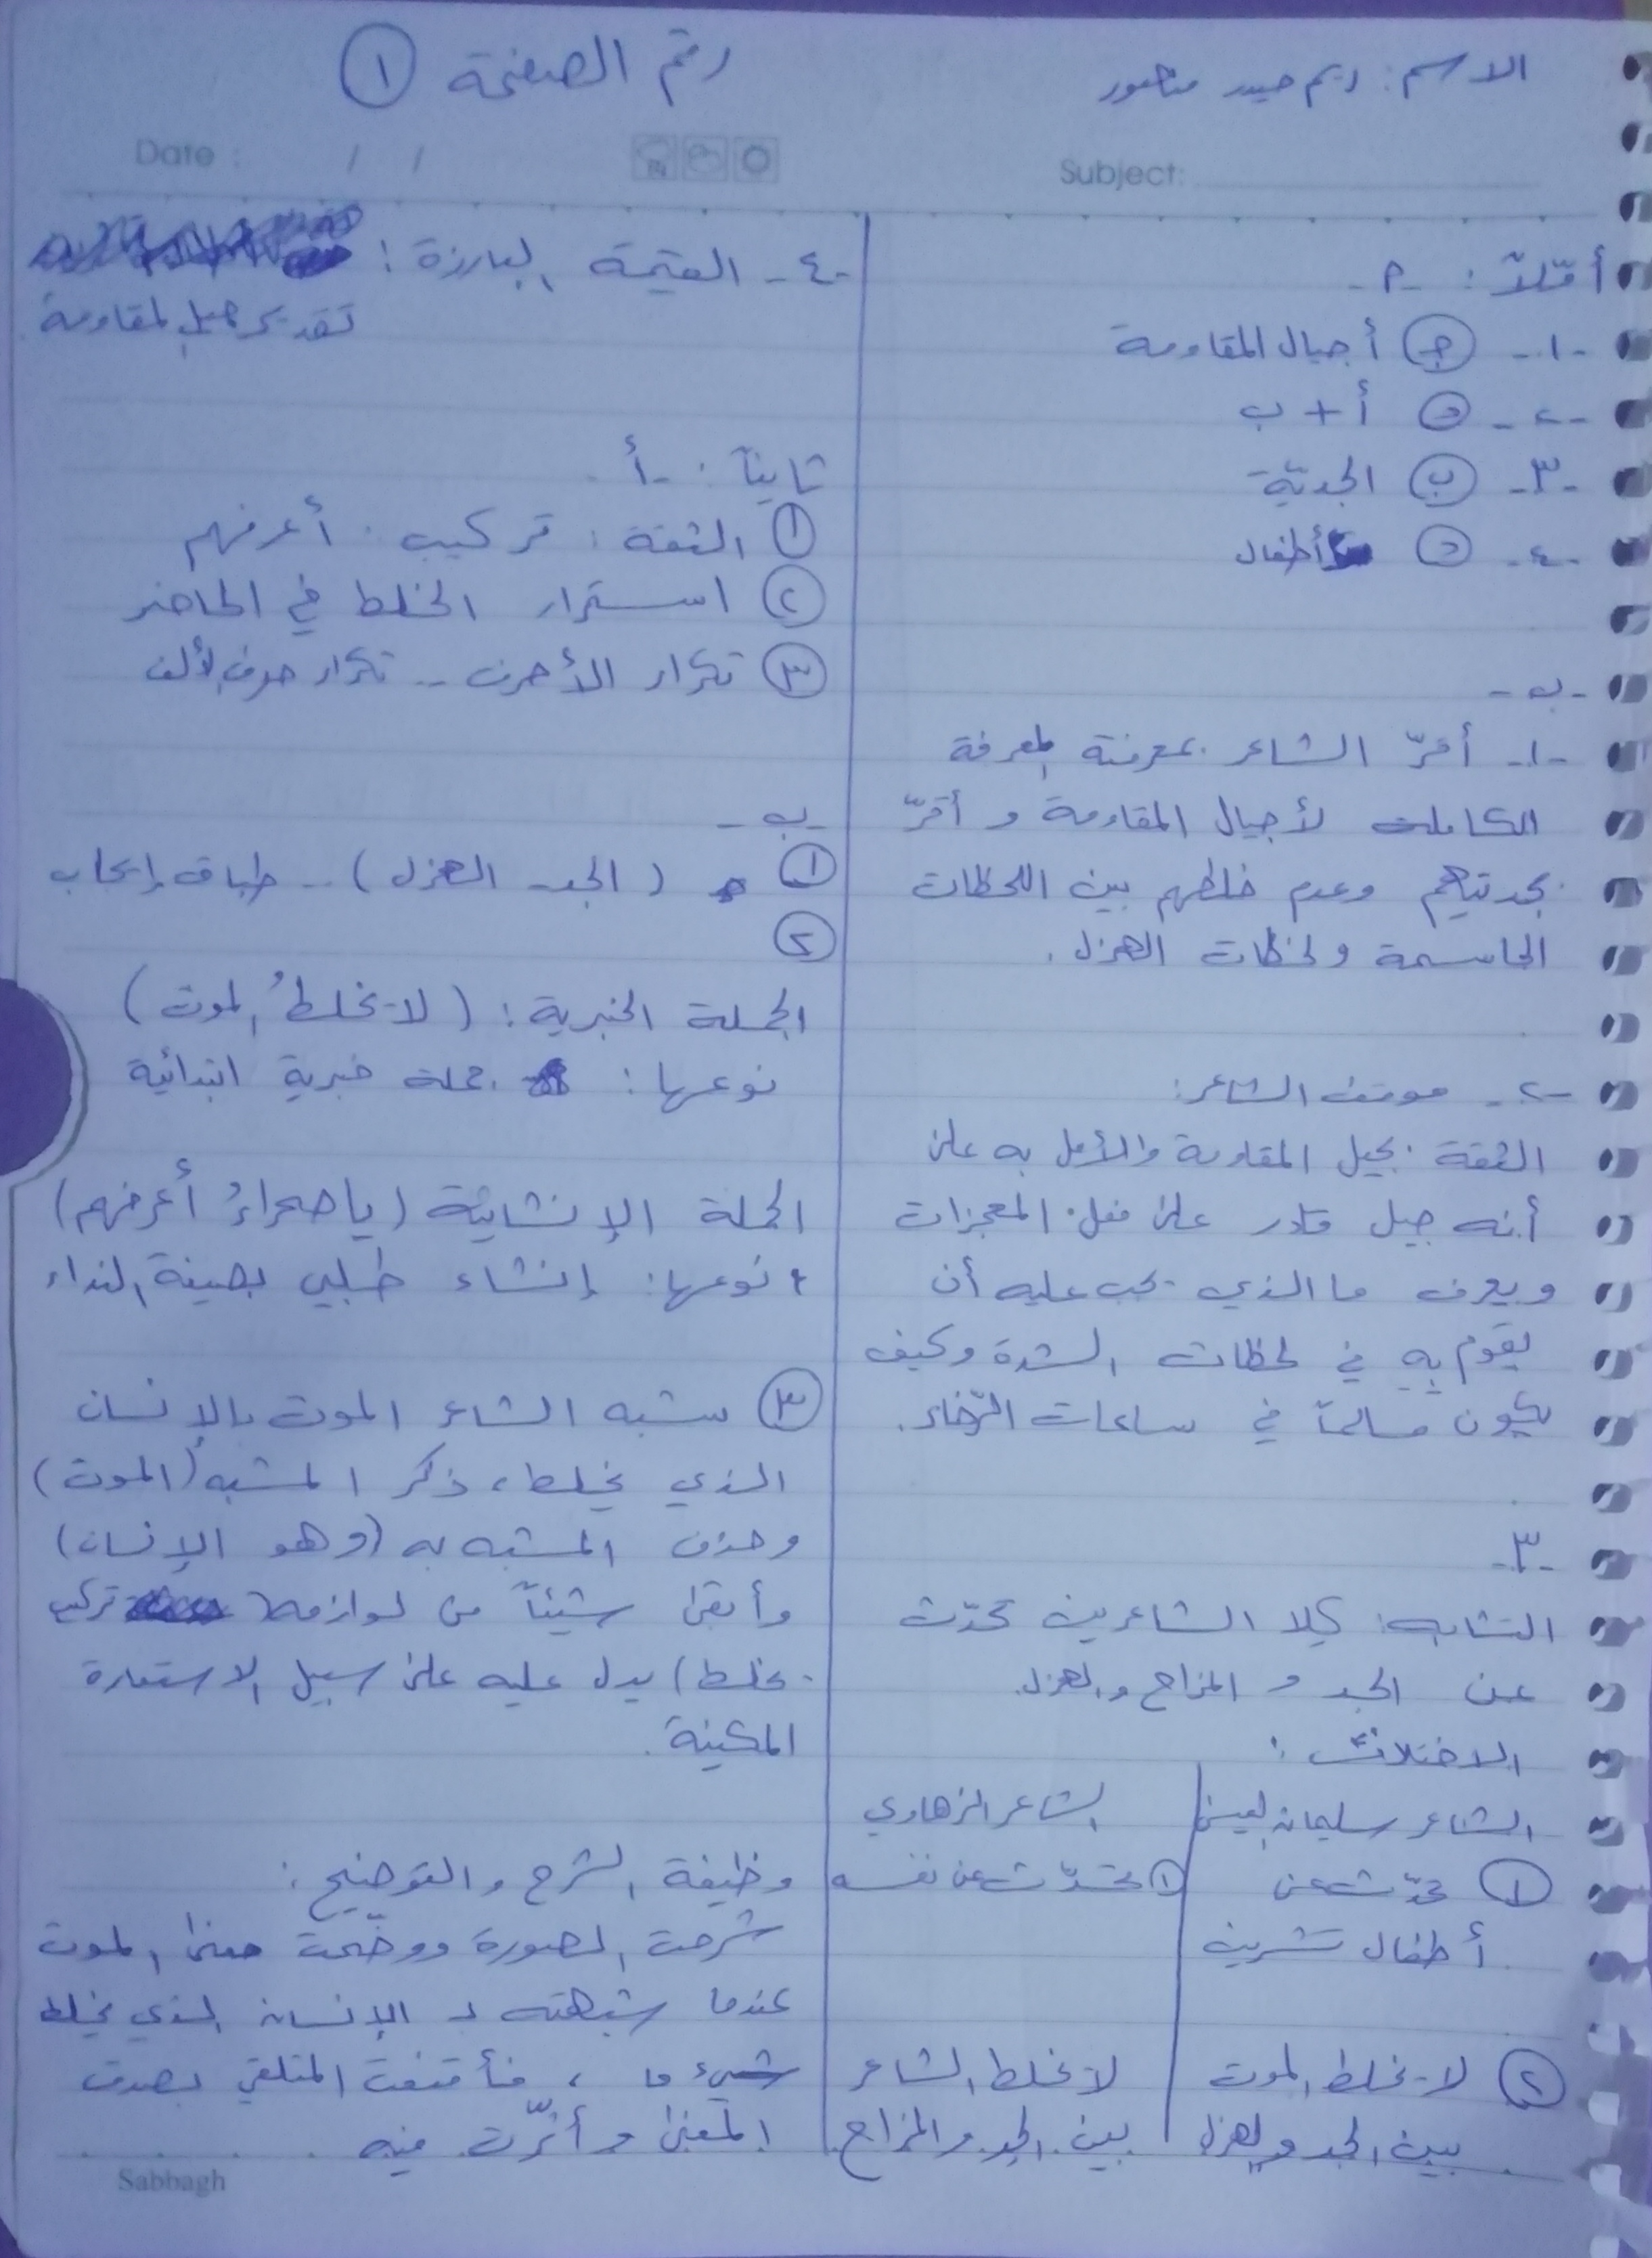 الاسم: ريم حيدر منصور
رقم الصفحة ①
Date : / /
Subject:
أوّلاً : -م-
-١- ج أجيال المقاومة
-٢- د أ + ب
-٣- ب الجديّة
-٤- د أطفال
-ب-
-١- أقرّ الشاعر بمعرفته المعرفة
الكاملة لأجيال المقاومة و أقرّ
بجديتهم وعدم خلطهم بين اللحظات
الحاسمة ولحظات الهزل .
-٢- موقف الشاعر:
الثقة بجيل المقاومة والأمل به على
أنه جيل قادر على فعل المعجزات
ويعرف ما الذي يجب عليه أن
يقوم به في لحظات الشدة وكيف
يكون مسالماً في ساعات الرّخاء.
-٣-
التشابه: كلا الشاعرين تحدّث
عن الجد و المزاح والهزل.
الاختلاف :
الشاعر سليمان العيسى
الشاعر الزهاوي
① تحدّث عن
① تحدّث عن نفسه
أطفال تشرين
② لا يخلط الموت
لا يخلط الشاعر
بين الجد والهزل
بين الجد والمزاح
-٤- القيمة البارزة :
تقدير جيل المقاومة
ثانياً : -أ-
① الثقة : تركيب : أعرفهم
② استمرار الخلط في الحاضر
③ تكرار الأحرف .. تكرار حرف الألف
-ب-
① (الجد - الهزل) .. طباق إيجاب
②
الجملة الخبرية : (لا يخلطُ الموت)
نوعها : جملة خبرية ابتدائية
الجملة الإنشائية (يا صحراءُ أعرفهم)
نوعها: إنشاء طلبي بصيغة النداء
③ شبه الشاعر الموت بالإنسان
الذي يخلط، ذكر المشبه (الموت)
وحذف المشبه به (وهو الإنسان)
وأبقى شيئاً من لوازمه تركيب
يخلط) يدل عليه على سبيل الاستعارة
المكنية.
وظيفة الشرح والتوضيح :
شرحت الصورة ووضّحت معنى الموت
عندما شبهته بـ الإنسان الذي يخلط
شيء ما ، فأقنعت المتلقي بصدق
المعنى وأثّرت فيه
Sabbagh